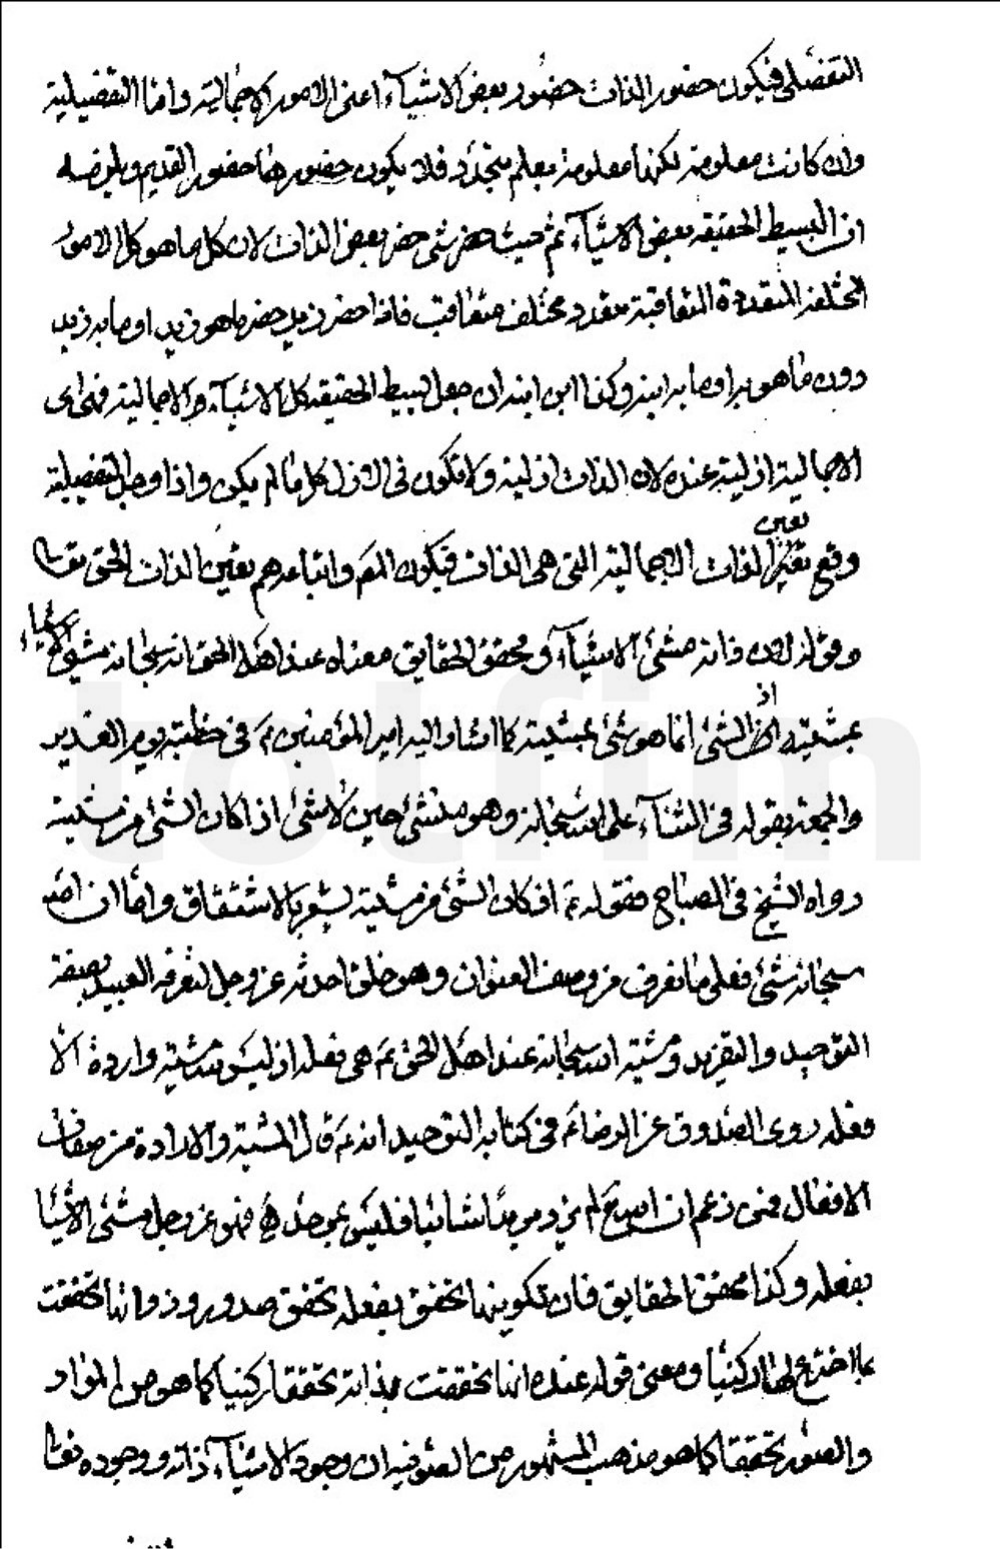 التفصيلى فيكون حضور الذات حضور بعض الاشيآء اعنى الامور الاجمالية واما التفصيلية
وان كانت معلومة لكنها معلومة بعلم متجدّد فلا يكون حضورها حضور القديم ويلزمه
ان البسيط الحقيقة بعض الاشيآء ثم حيث حضر شئ حضر بعض الذات لان كل ما هو كل الامور
المختلفة المتعددة المتعاقبة متعدد مختلف متعاقب فاذا حضر زيد حضر ما هو زيد او ما به زيد
دون ما هو او ما به ابنه وكذا ابن ابنه ان جعل البسيط الحقيقة كل الاشيآء الاجمالية فهى اى
الاجمالية ازلية عنده لان الذات ازلية ولا تكون فى الازل كل ما لم يكن واذا وجد التفصيلية
وقع تغير الذات الاجمالية التى هى الذات فيكون المص واتباعه هم بعين الذات الحق تعالى
تعين
وقوله لان ذاته مشئ الاشيآء ومحقق الحقايق معناه عند اهل الحق انه سبحانه مشئ الاشياء
بمشيته اذ الشئ انما هو شئ بمشيته كما اشار اليه امير المؤمنين ع فى خطبته يوم الغدير
والجمعة بقوله فى الثنآء على الله سبحانه وهو منشئ حين لا شئ اذ كان الشئ من مشيته
رواه الشيخ فى المصباح فقوله ع اذ كان الشئ من مشيته يشعر بالاشتقاق واما ان الله
سبحانه شئ فعلى ما تعرف من وصف العنوان وهو خلق احدثه عز وجل لتعرفه العبيد بصفة
التوحيد والتفريد ومشية الله سبحانه عند اهل الحق ع هى فعله اذ ليس له مشية وارادة الا
فعله روى الصدوق عن الرضا ع فى كتابه التوحيد انه ع قال المشية والارادة من صفات
الافعال فمن زعم ان الله تع لم يزل مريدا شائيا فليس بموحد فهو عز وجل مشئ الاشيا
بفعله وكذا محقق الحقايق فان تكوينها تحقق بفعله تحقق صدور وذواتها تحققت
بما اخترع لها ركنيا ومعنى قوله عنده انها تحققت بذاته تحققا ركنيا كما هو من المواد
والصور تحققا كما هو مذهب المشهور من الصوفية ان وجود الاشيآء ذاته ووجوده تعالى